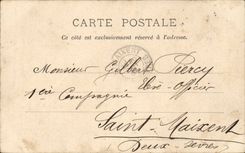 CARTE POSTALE
Ce côté est exclusivement réservé à l'adresse.
Monsieur Gilbert Piercy
Elève-Officier
1ère Compagnie
Saint-Maixent
Deux-Sèvres